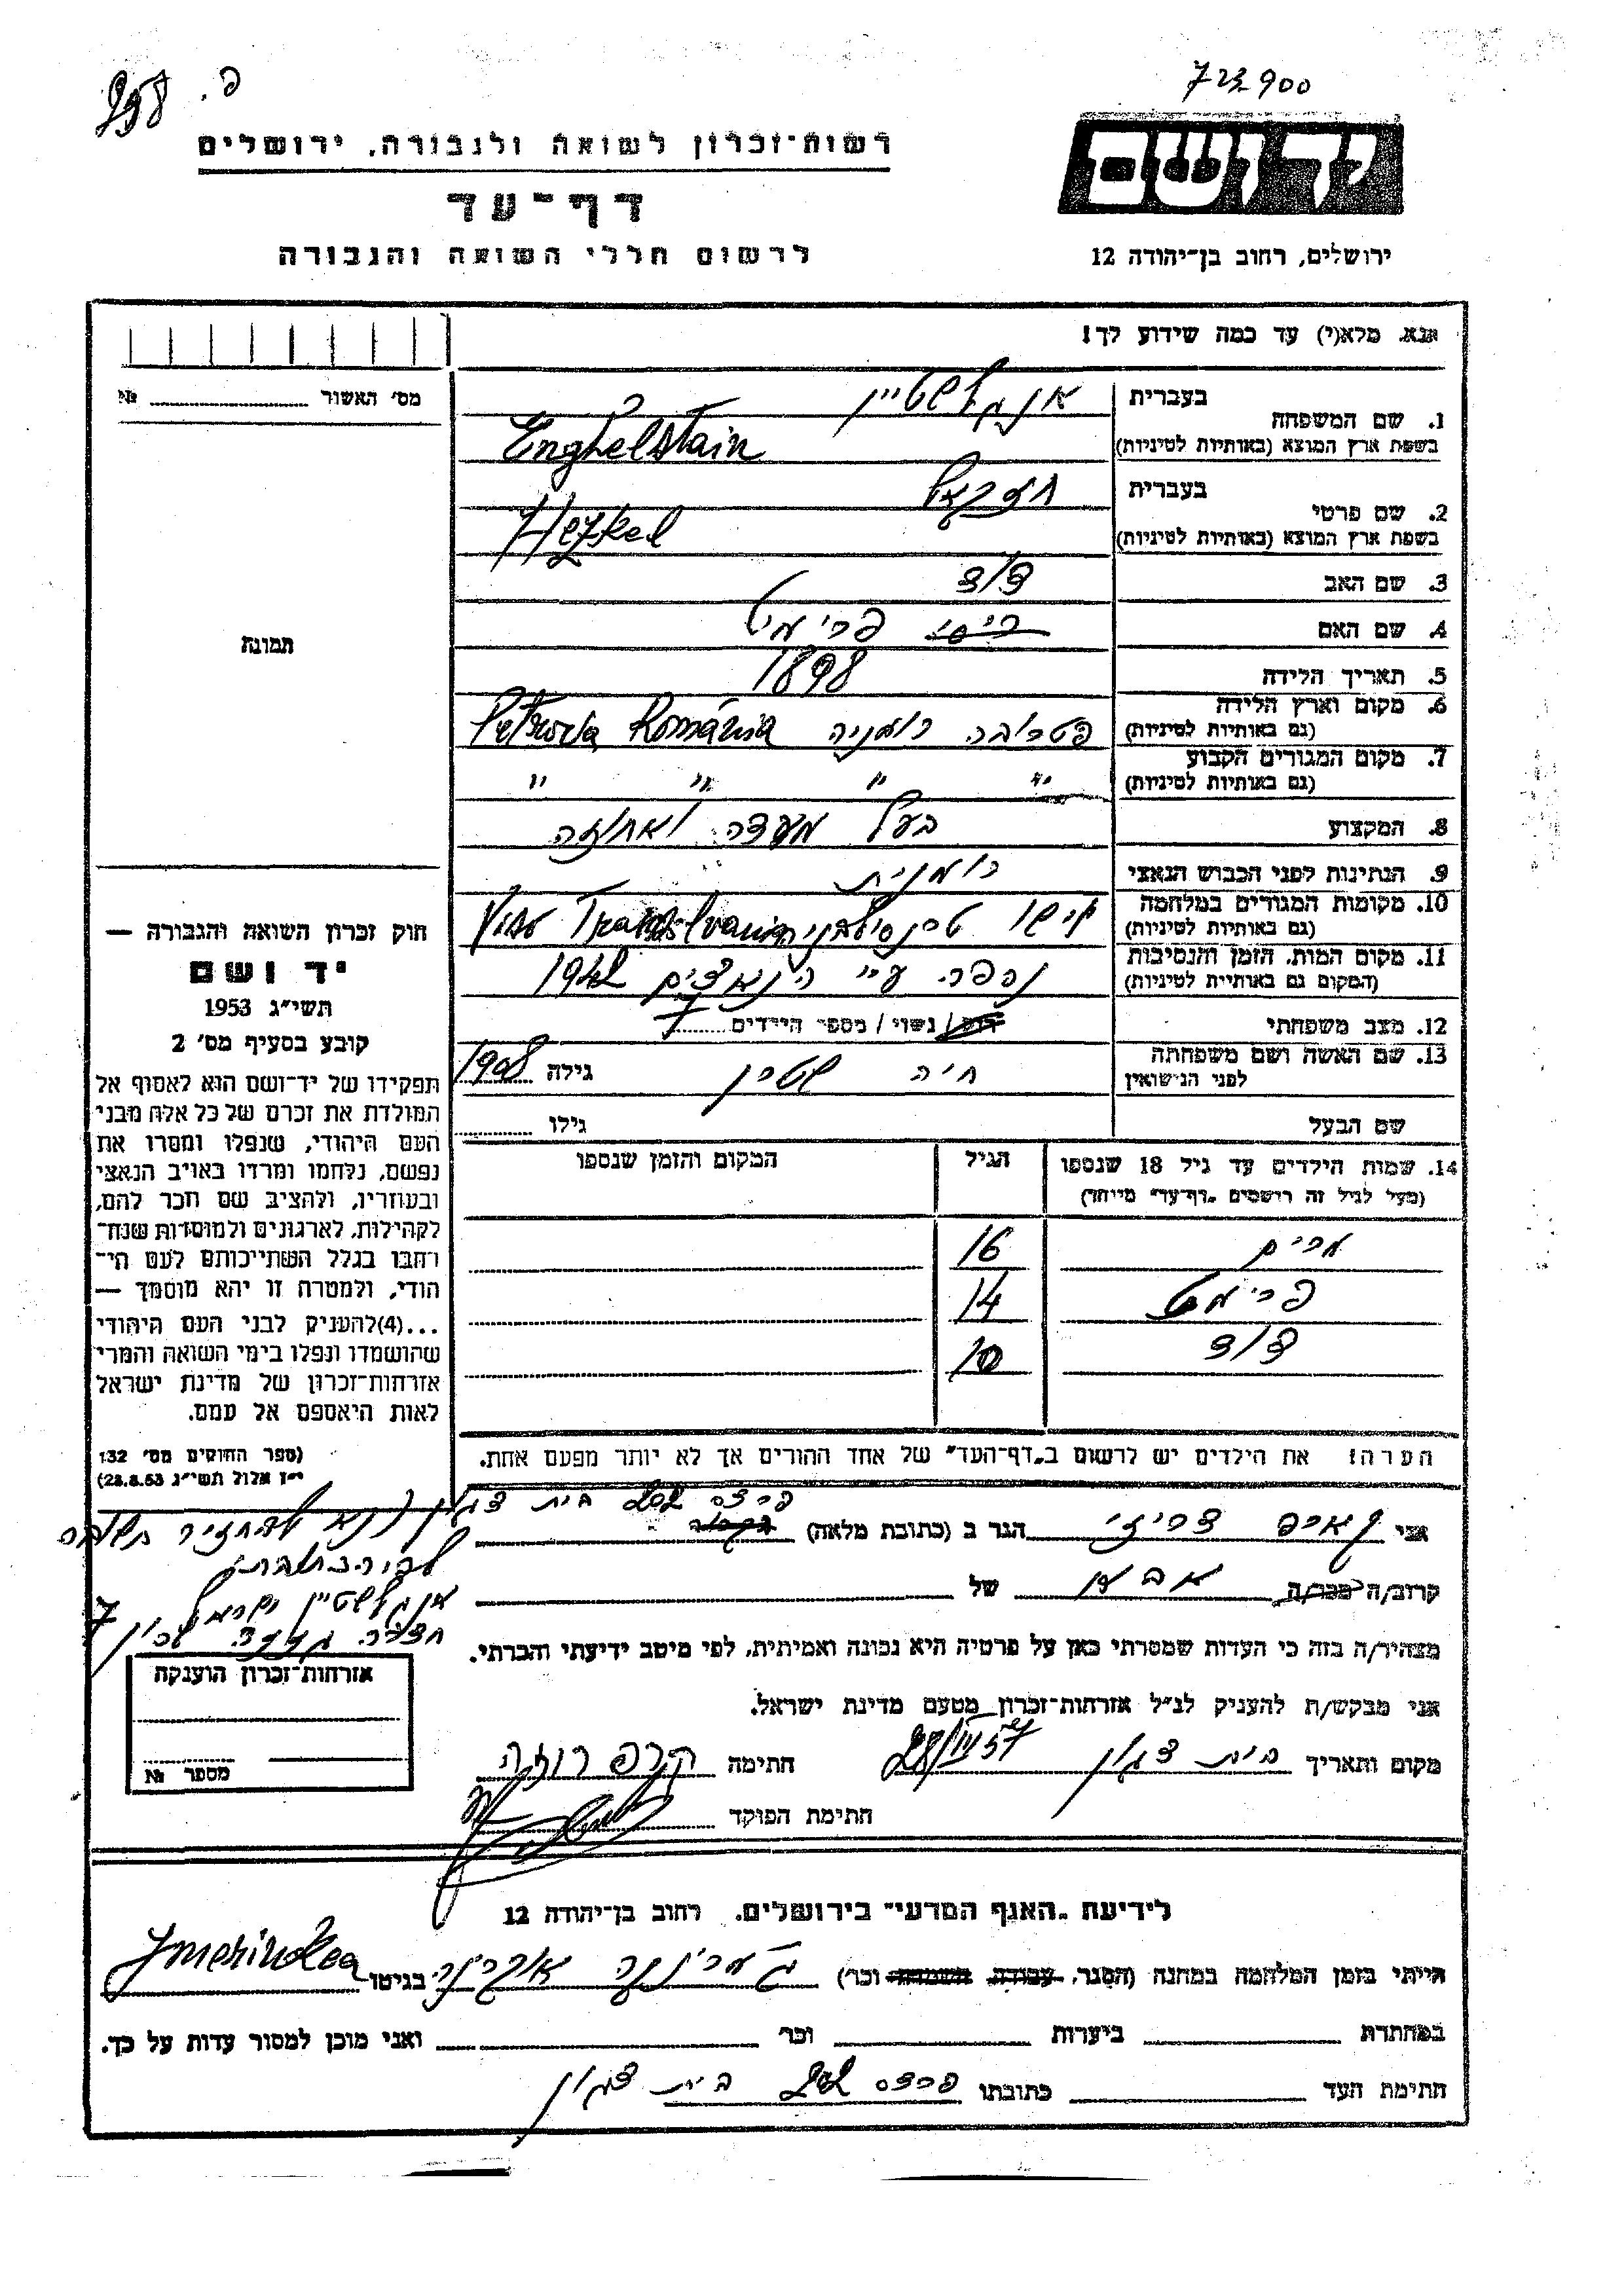 723900
פ. 958
יד ושם
רשות־זכרון לשואה ולגבורה, ירושלים
דף־עד
לרשום חללי השואה והגבורה
ירושלים, רחוב בן־יהודה 12
אנא, מלא(י) עד כמה שידוע לך!
מס' האשור №
1. שם המשפחה
בעברית אנגלשטיין
בשפת ארץ המוצא (באותיות לטיניות) Enghelstain
2. שם פרטי
בעברית חזקאל
בשפת ארץ המוצא (באותיות לטיניות) Hezkel
3. שם האב דוד
4. שם האם פרימט
5. תאריך הלידה 1898
6. מקום וארץ הלידה (גם באותיות לטיניות) פטרובה רומניה Petrova România
7. מקום המגורים הקבוע (גם באותיות לטיניות) " " " "
8. המקצוע בעל מעדה ואחוזה
9. הנתינות לפני הכבוש הנאצי רומנית
10. מקומות המגורים במלחמה (גם באותיות לטיניות) וישו טרנסילבניה
11. מקום המות, הזמן והנסיבות (המקום גם באותיות לטיניות) נספה ע"י הנאצים 1942
12. מצב משפחתי רווק / נשוי / מספר הילדים 7
13. שם האשה ושם משפחתה לפני הנישואין חיה שטרן גילה 1908
שם הבעל גילו
14. שמות הילדים עד גיל 18 שנספו הגיל המקום והזמן שנספו
(מעל לגיל זה רושמים „דף־עד" מיוחד)
מרים 16
פרימט 14
דוד 10
הערה: את הילדים יש לרשום ב„דף־העד" של אחד ההורים אך לא יותר מפעם אחת.
תמונה
חוק זכרון השואה והגבורה —
יד ושם
תשי"ג 1953
קובע בסעיף מס' 2
תפקידו של יד־ושם הוא לאסוף אל
המולדת את זכרם של כל אלה מבני
העם היהודי, שנפלו ומסרו את
נפשם, נלחמו ומרדו באויב הנאצי
ובעוזריו, ולהציב שם וזכר להם,
לקהילות, לארגונים ולמוסדות שנח־
רבו בגלל השתייכותם לעם הי־
הודי, ולמטרה זו יהא מוסמך —
...(4) להעניק לבני העם היהודי
שהושמדו ונפלו בימי השואה והמרי
אזרחות־זכרון של מדינת ישראל
לאות היאספם אל עמם.
(ספר החוקים מס' 132
י"ז אלול תשי"ג 28.8.53)
נא להחזיר תשובה
אנגלשטיין ישראל
אני הגר ב (כתובת מלאה) פרדס בית דגון
קרוב/ה מכר/ה של
מצהיר/ה בזה כי העדות שמסרתי כאן על פרטיה היא נכונה ואמיתית, לפי מיטב ידיעתי והכרתי.
אני מבקש/ת להעניק לנ"ל אזרחות־זכרון מטעם מדינת ישראל.
מקום ותאריך בית דגון 28/IV 57 חתימה קרפ רוזה
חתימת הפוקד
אזרחות־זכרון הוענקה
מספר №
לידיעת „האגף המדעי" בירושלים, רחוב בן־יהודה 12
הייתי בזמן המלחמה במחנה (הסגר, עבודה, השמדה וכו') ז'מרינקה אוקרינה בגיטו Jmerinkea
במחתרת ביערות וכו' ואני מוכן למסור עדות על כך.
חתימת העד כתובתו פרדס בית דגון